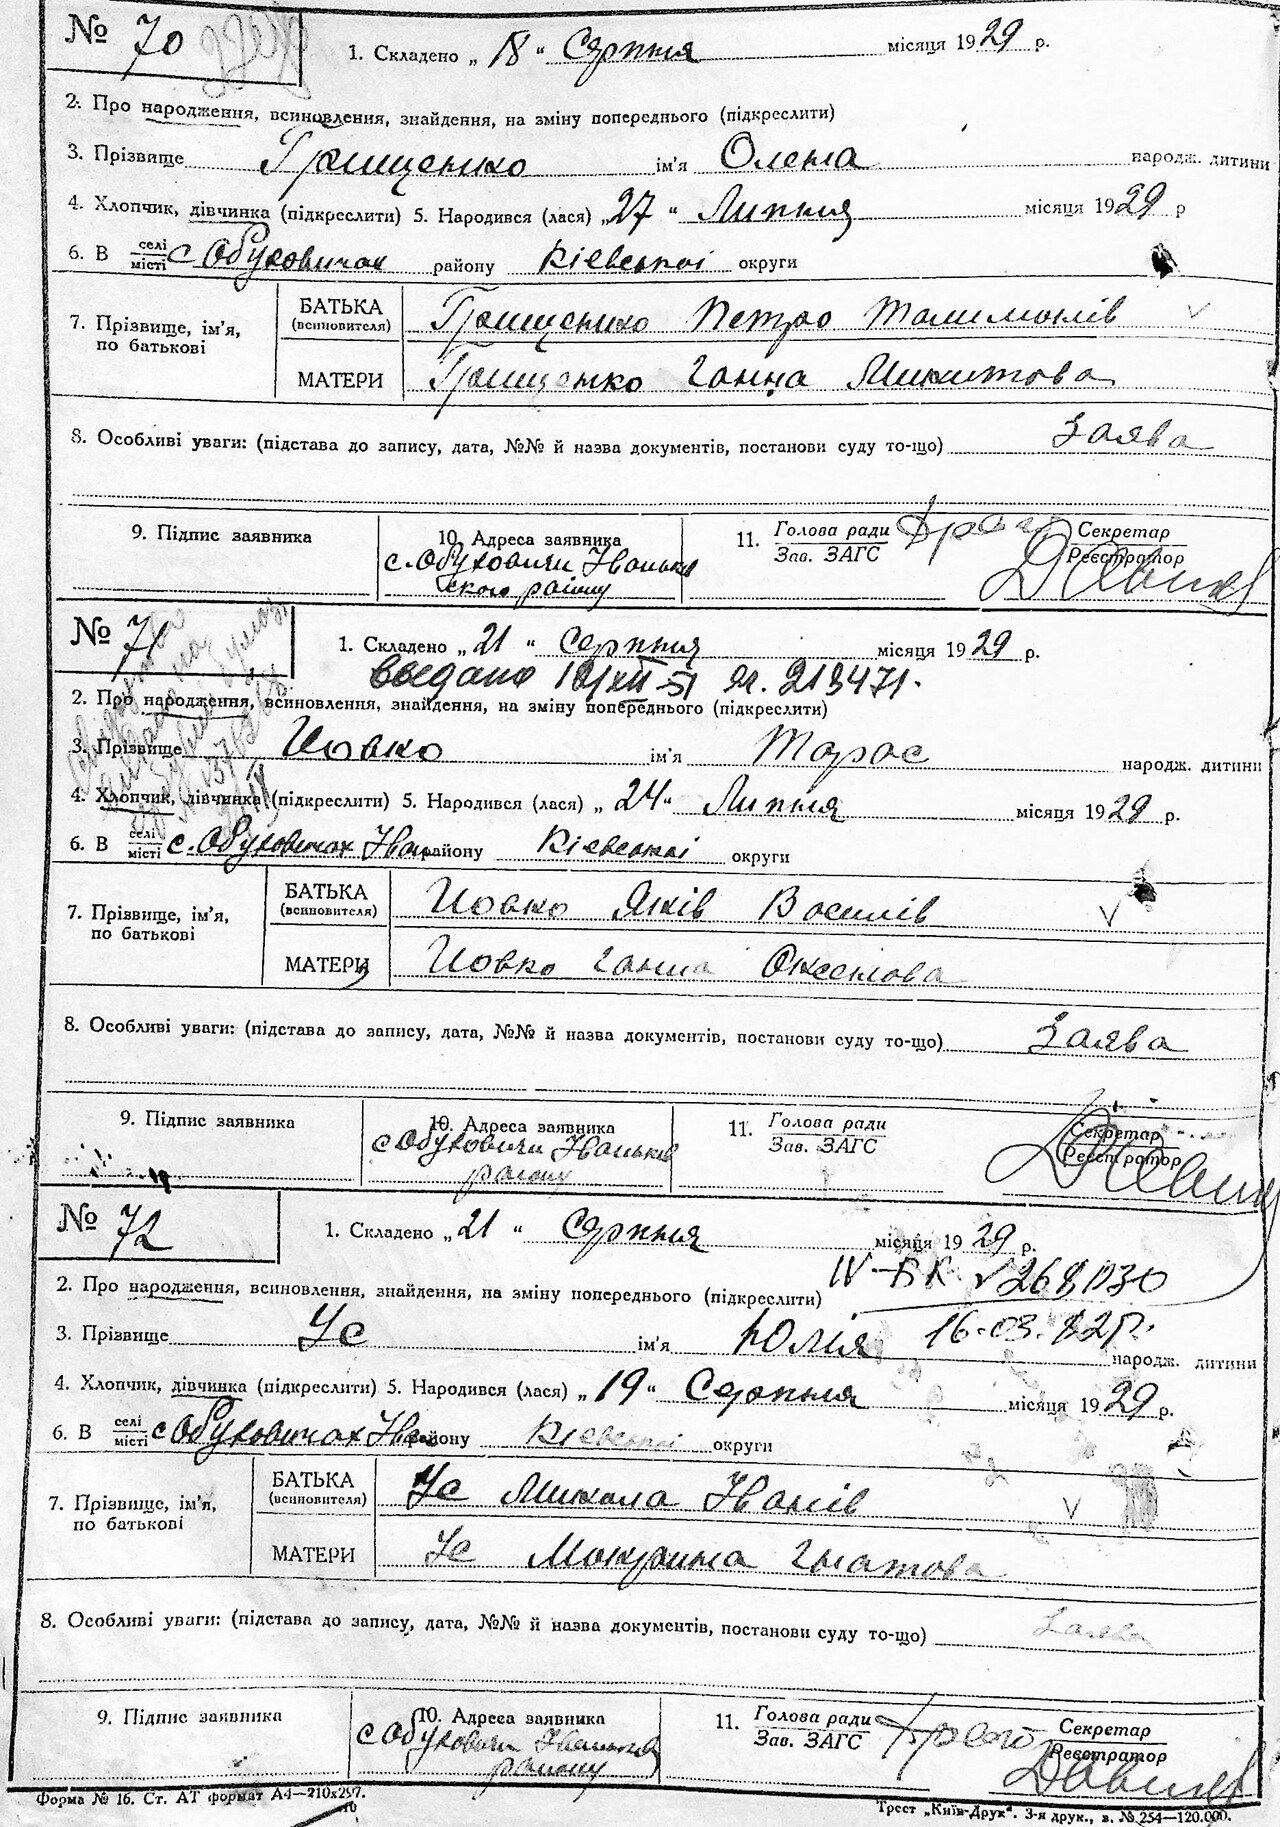 № 70
1. Складено „ 18 “ Серпня місяця 1929 р.
2. Про народження, всиновлення, знайдення, на зміну попереднього (підкреслити)
3. Прізвище Грищенко ім'я Олена народж. дитини
4. Хлопчик, дівчинка (підкреслити) 5. Народився (лася) „ 27 “ Липня місяця 1929 р
6. В селі місті с Обуховичах району Кіевської округи
7. Прізвище, ім'я, по батькові
БАТЬКА (всиновителя) Грищенко Петро
МАТЕРИ Грищенко Ганна Микитова
8. Особливі уваги: (підстава до запису, дата, №№ й назва документів, постанови суду то-що) Заява
9. Підпис заявника
10. Адреса заявника
с. Обуховичи Іваньків
ского району
11. Голова ради
Зав. ЗАГС
Секретар
Реєстратор
№ 71
1. Складено „ 21 “ Серпня місяця 1929 р.
213471.
2. Про народження, всиновлення, знайдення, на зміну попереднього (підкреслити)
3. Прізвище Йовко ім'я Тарас народж. дитини
4. Хлопчик, дівчинка (підкреслити) 5. Народився (лася) „ 24 “ Липня місяця 1929 р.
6. В селі місті с. Обуховичах Іван. району Кіевської округи
7. Прізвище, ім'я, по батькові
БАТЬКА (всиновителя) Йовко Яків Василів
МАТЕРИ Йовко Ганна Оксентова
8. Особливі уваги: (підстава до запису, дата, №№ й назва документів, постанови суду то-що) Заява
9. Підпис заявника
10. Адреса заявника
с Обуховичи Іваньків
району
11. Голова ради
Зав. ЗАГС
Секретар
Реєстратор
№ 72
1. Складено „ 21 “ Серпня місяця 1929 р.
IV-БК № 268030
2. Про народження, всиновлення, знайдення, на зміну попереднього (підкреслити)
16-03.82р.
3. Прізвище Ус ім'я Юлія народж. дитини
4. Хлопчик, дівчинка (підкреслити) 5. Народився (лася) „ 19 “ Серпня місяця 1929 р.
6. В селі місті с Обуховичах Іван. району Кіевської округи
7. Прізвище, ім'я, по батькові
БАТЬКА (всиновителя) Ус Микола Іванів
МАТЕРИ Ус Мокрина Гнатова
8. Особливі уваги: (підстава до запису, дата, №№ й назва документів, постанови суду то-що) Заява
9. Підпис заявника
10. Адреса заявника
с Обуховичи Іваньків
району
11. Голова ради
Зав. ЗАГС
Секретар
Реєстратор
Форма № 16. Ст. АТ формат А4—210х297.
Трест „Київ-Друк“. 3-я друк., в. № 254—120.000.